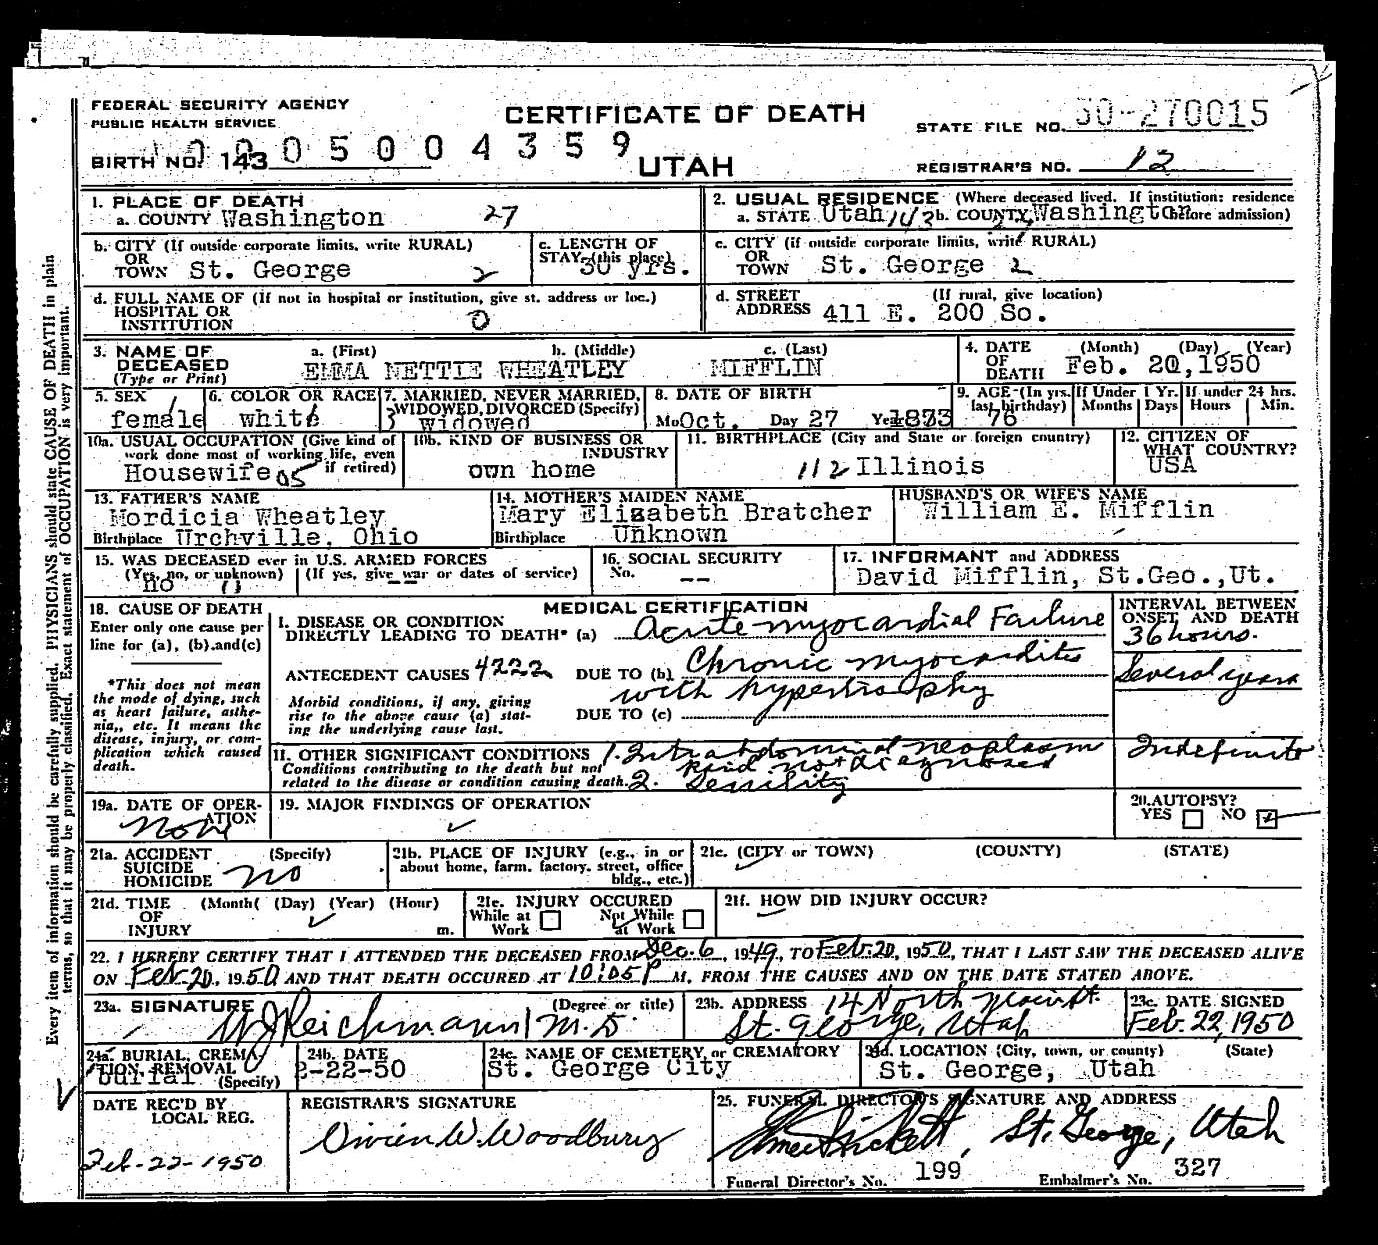 FEDERAL SECURITY AGENCY
PUBLIC HEALTH SERVICE
CERTIFICATE OF DEATH
STATE FILE NO. 50-270015
BIRTH NO. 143 05004359
UTAH
REGISTRAR'S NO. 12
1. PLACE OF DEATH
a. COUNTY Washington 27
2. USUAL RESIDENCE (Where deceased lived. If institution: residence before admission)
a. STATE Utah 143 b. COUNTY Washington
b. CITY (If outside corporate limits, write RURAL)
OR
TOWN St. George 2
c. LENGTH OF
STAY (this place)
50 yrs.
c. CITY (if outside corporate limits, write RURAL)
OR
TOWN St. George 2
d. FULL NAME OF (If not in hospital or institution, give st. address or loc.)
HOSPITAL OR
INSTITUTION 0
d. STREET (If rural, give location)
ADDRESS 411 E. 200 So.
3. NAME OF
DECEASED
(Type or Print)
a. (First) b. (Middle) c. (Last)
EMMA NETTIE WHEATLEY MIFFLIN
4. DATE (Month) (Day) (Year)
OF
DEATH Feb. 20, 1950
5. SEX 1
female
6. COLOR OR RACE
white
7. MARRIED, NEVER MARRIED,
WIDOWED, DIVORCED (Specify)
3 widowed
8. DATE OF BIRTH
Mo Oct. Day 27 Yr 1873
9. AGE (In yrs. last birthday)
76
If Under 1 Yr.
Months Days
If under 24 hrs.
Hours Min.
10a. USUAL OCCUPATION (Give kind of
work done most of working life, even
if retired)
Housewife 05
10b. KIND OF BUSINESS OR
INDUSTRY
own home
11. BIRTHPLACE (City and State or foreign country)
112 Illinois
12. CITIZEN OF
WHAT COUNTRY?
USA
13. FATHER'S NAME
Mordicia Wheatley
Birthplace Urchville, Ohio
14. MOTHER'S MAIDEN NAME
Mary Elizabeth Bratcher
Birthplace Unknown
HUSBAND'S OR WIFE'S NAME
William E. Mifflin
15. WAS DECEASED ever in U.S. ARMED FORCES
(Yes, no, or unknown) (If yes, give war or dates of service)
no --
16. SOCIAL SECURITY
No. --
17. INFORMANT and ADDRESS
David Mifflin, St.Geo.,Ut.
18. CAUSE OF DEATH
Enter only one cause per
line for (a), (b).and(c)
*This does not mean
the mode of dying, such
as heart failure, asthe-
nia,, etc. It means the
disease, injury, or com-
plication which caused
death.
MEDICAL CERTIFICATION
I. DISEASE OR CONDITION
DIRECTLY LEADING TO DEATH* (a) Acute myocardial Failure
ANTECEDENT CAUSES 4222 DUE TO (b) Chronic myocarditis
with hypertrophy
Morbid conditions, if any, giving
rise to the above cause (a) stat-
ing the underlying cause last.
DUE TO (c)
INTERVAL BETWEEN
ONSET AND DEATH
36 hours.
Several years
II. OTHER SIGNIFICANT CONDITIONS
Conditions contributing to the death but not
related to the disease or condition causing death.
1. Intra abdominal neoplasm
kind not diagnosed
2. Senility
Indefinite
19a. DATE OF OPER-
ATION
None
19. MAJOR FINDINGS OF OPERATION
20. AUTOPSY?
YES NO
21a. ACCIDENT (Specify)
SUICIDE
HOMICIDE no
21b. PLACE OF INJURY (e.g., in or
about home, farm, factory, street, office
bldg., etc.)
21c. (CITY or TOWN) (COUNTY) (STATE)
21d. TIME (Month( (Day) (Year) (Hour)
OF
INJURY m.
21e. INJURY OCCURED
While at Work
Not While at Work
21f. HOW DID INJURY OCCUR?
22. I HEREBY CERTIFY THAT I ATTENDED THE DECEASED FROM Dec. 6, 1949, TO Feb. 20, 1950, THAT I LAST SAW THE DECEASED ALIVE
ON Feb. 20, 1950 AND THAT DEATH OCCURED AT 10:05 P M, FROM THE CAUSES AND ON THE DATE STATED ABOVE.
23a. SIGNATURE (Degree or title)
W J Reichmann M.D.
23b. ADDRESS 14 North
St. George, Utah
23c. DATE SIGNED
Feb. 22, 1950
24a. BURIAL, CREMA-
TION, REMOVAL
(Specify)
burial
24b. DATE
2-22-50
24c. NAME OF CEMETERY, or CREMATORY
St. George City
24d. LOCATION (City, town, or county) (State)
St. George, Utah
DATE REC'D BY
LOCAL REG.
Feb-22-1950
REGISTRAR'S SIGNATURE
Vivien W. Woodbury
25. FUNERAL DIRECTOR'S SIGNATURE AND ADDRESS
St. George, Utah
Funeral Director's No. 199
Embalmer's No. 327
Every item of information should be carefully supplied. PHYSICIANS should state CAUSE OF DEATH in plain
terms, so that it may be properly classified. Exact statement of OCCUPATION is very important.